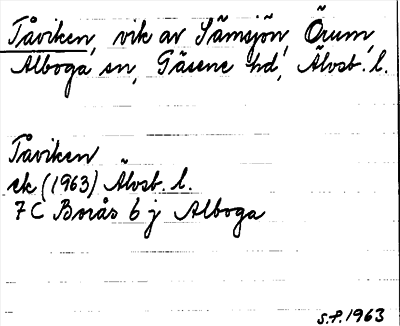 Tåviken, vik av Sämsjön, Örum,
Alboga sn, Gäsene hd, Älvsb. l.
Tåviken
ek (1963) Älvsb. l.
7 C Borås 6 j Alboga
S.P. 1963